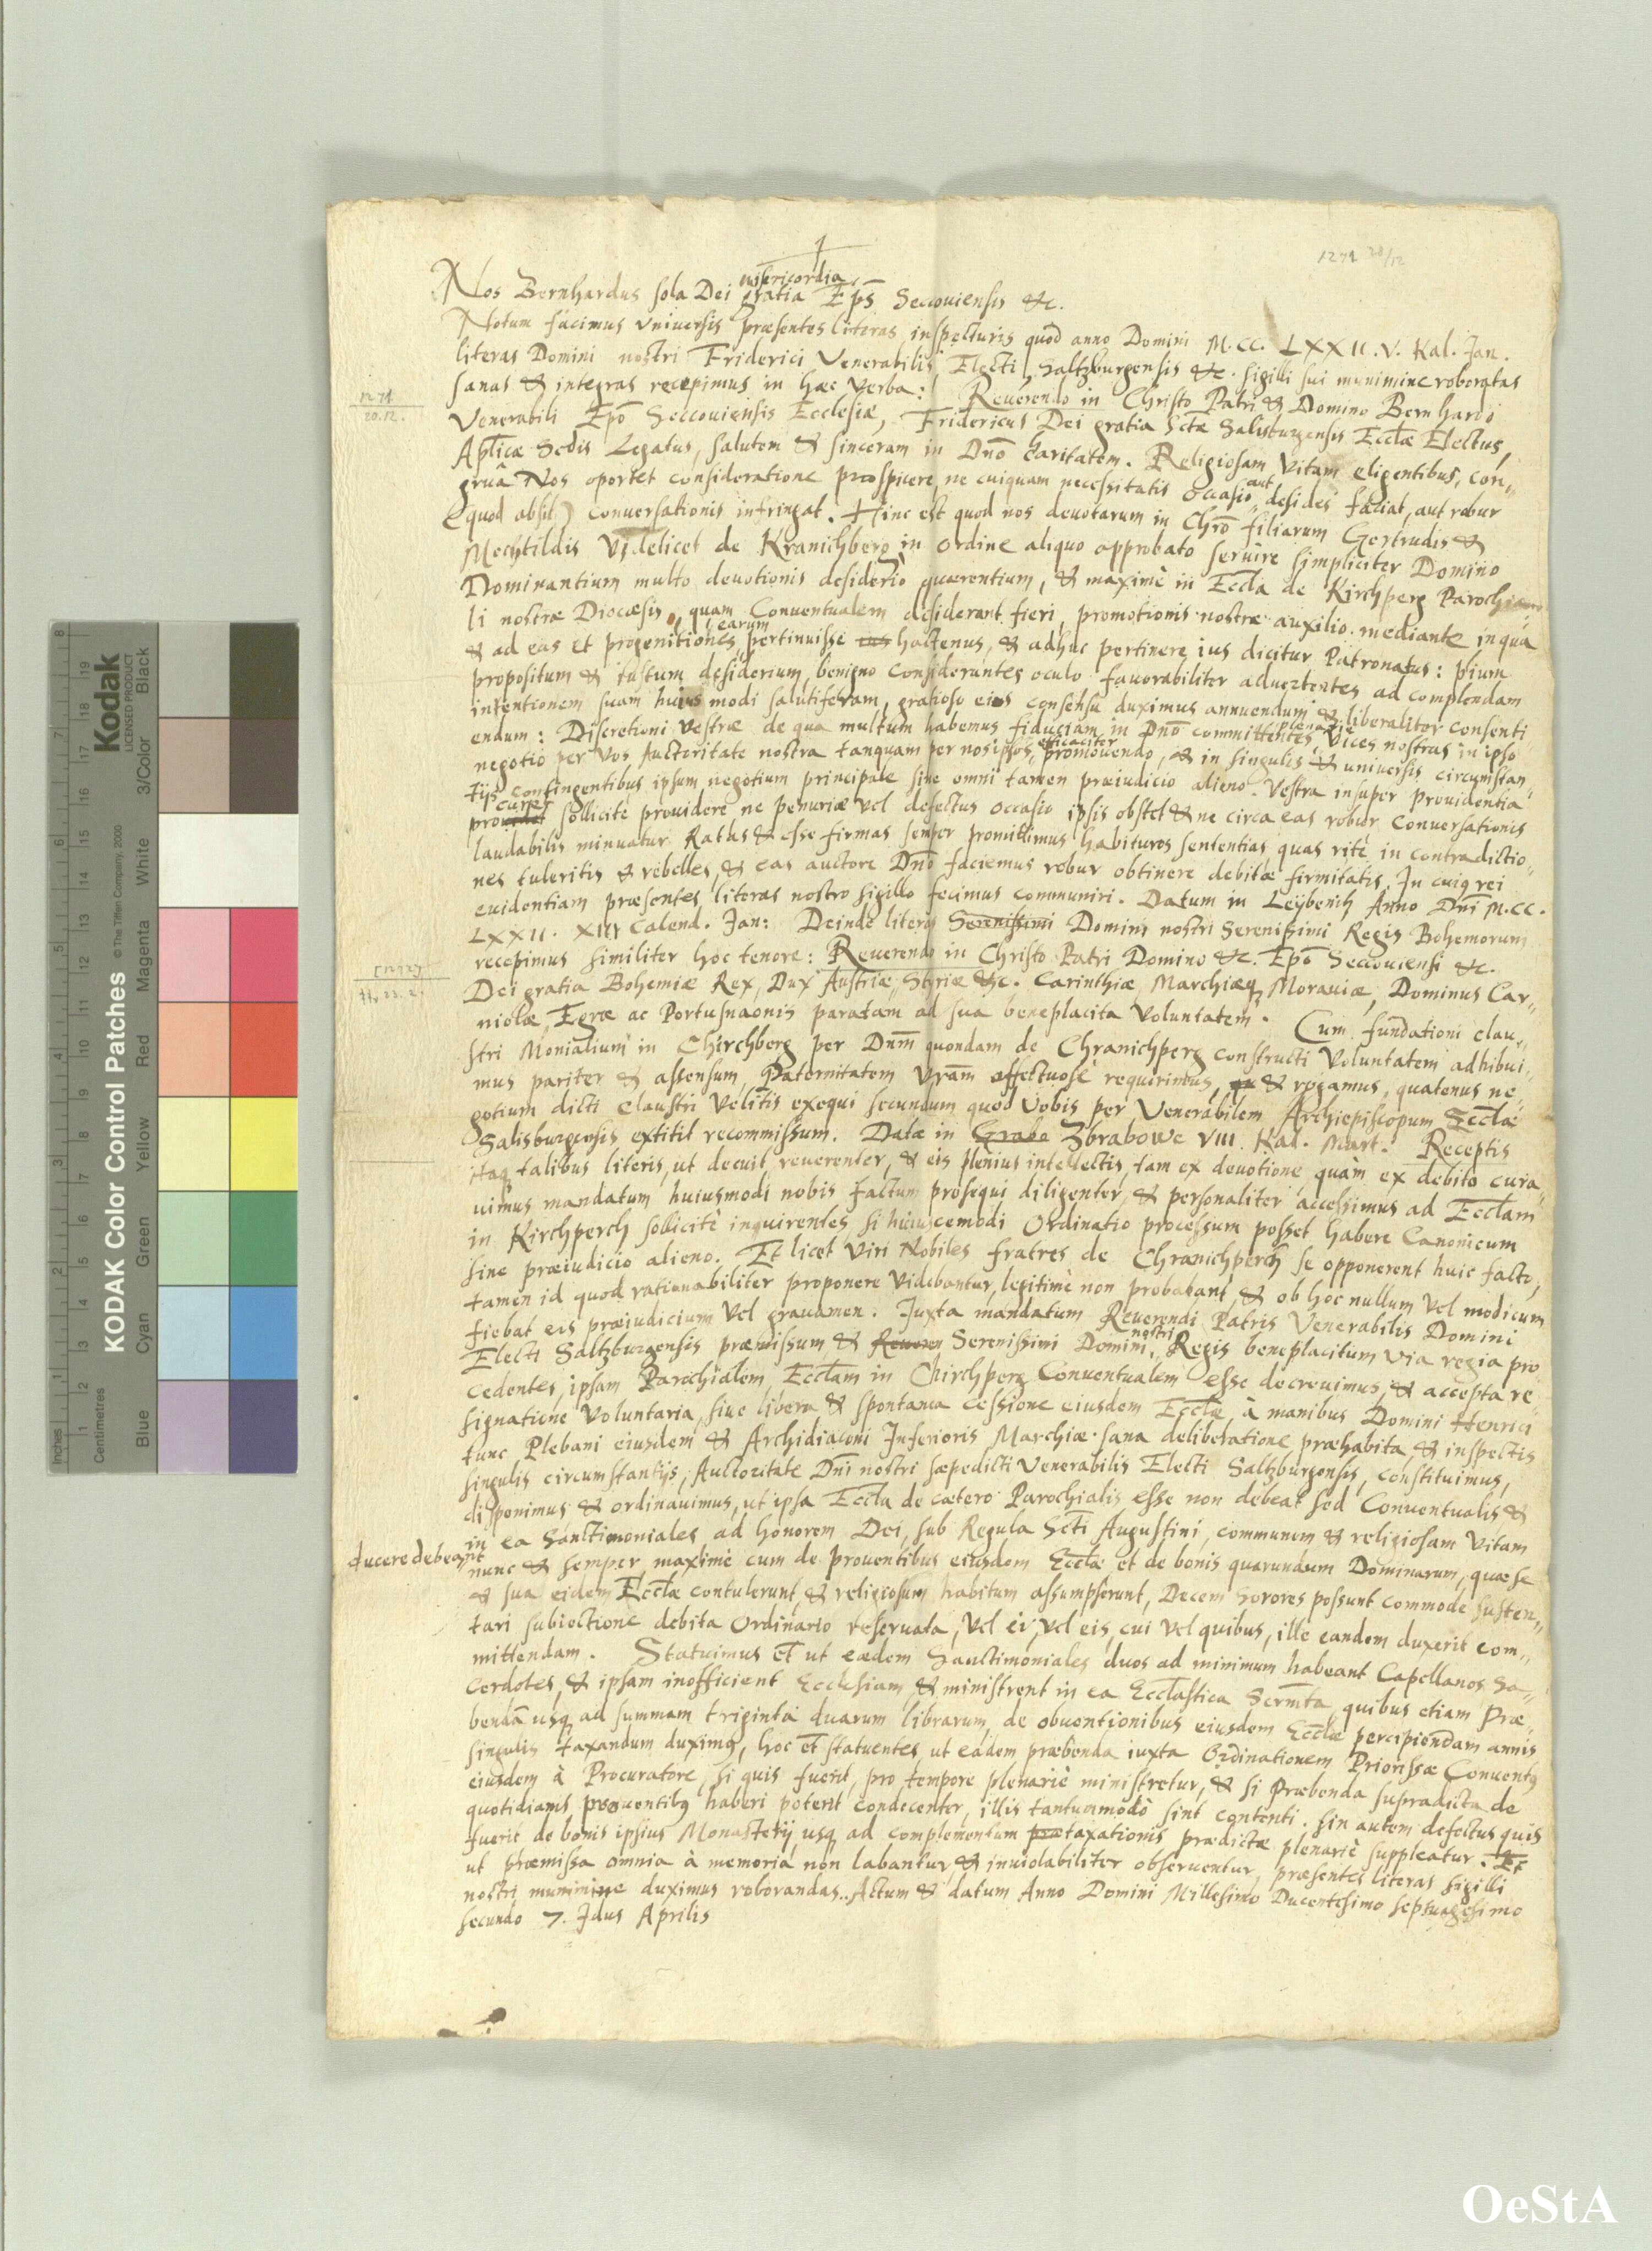 1271 28/12
1
Nos Bernhardus sola Dei misericordia gratia Eps̄ Seccouiensis &c.
Notum facimus vniuersis præsentes literas inspecturis quod anno Domini M.CC. LXXII. V. Kal. Jan.
literas Domini nostri Friderici Venerabilis Electi Saltzburgensis &c. sigilli sui munimine roboratas
sanas & integras recepimus in hæc verba: Reuerendo in Christo Patri & Domino Bernhardo
1271
20.12.
Venerabili Ep̄o Seccouiensis Ecclesiæ, Fridericus Dei gratia Sctæ Salisburgensis Ecclæ Electus,
Aplicæ Sedis Legatus, salutem & sinceram in Dn̄o Caritatem. Religiosam Vitam eligentibus, con„
gruâ Nos oportet consideratione prospicere, ne cuiquam necessitatis occasio aut desides faciat, aut robur
(quod absit) conuersationis infringat. Hinc est quod nos deuotarum in Chr̄o filiarum Gertrudis &
Mechtildis Videlicet de Kranichberg in ordine aliquo approbato seruire simpliciter Domino
Dominantium multo deuotionis desiderio quærentium, & maximè in Eccla de Kirchperg Parochia
li nostræ Diocæsis, quam Conuentualem desiderant fieri, promotionis nostræ auxilio mediante in qua
& ad eas et progenitiones earum pertinuisse ius hactenus, & adhuc pertinere ius dicitur Patronatus: pium
propositum & iustum desiderium, benigno considerantes oculo fauorabiliter aduertentes ad complendam
intentionem suam huiusmodi salutiferam, gratioso eius consensu duximus annuendum & liberaliter consenti
endum: Discretioni Vestræ de qua multum habemus fiduciam in Dn̄o committentes plenariè Vices nostras in ipso
negotio per Vos Auctoritate nostra tanquam per nos ipsos, efficaciter promouendo, & in singulis & uniuersis circumstan„
tijs contingentibus ipsum negotium principale sine omni tamen præiudicio alieno. Vestra insuper Prouidentia
procuret sollicite prouidere ne penuriæ vel defectus occasio ipsis obstet & ne circa eas robur Conuersationis
laudabilis minuatur. Ratas & esse firmas semper promittimus habituros sententias, quas ritè in contradictio„
nes tuleritis & rebelles, & eas auctore Dn̄o faciemus robur obtinere debitæ firmitatis. In cuiq rei
euidentiam præsentes literas nostro sigillo fecimus communiri. Datum in Leybenitz Anno Dn̄i M.CC.
LXXII. XIII Calend. Jan: Deinde literas Serenissimi Domini nostri Serenissimi Regis Bohemorum
recepimus similiter hoc tenore: Reuerendo in Christo Patri Domino &c. Ep̄o Seccouiensi &c.
[1272]
Dei gratia Bohemiæ Rex, Dux Austriæ, Styriæ &c. Carinthiæ, Marchiæq Morauiæ, Dominus Car„
niolæ, Egræ ac Portusnaonis paratam ad sua beneplacita Voluntatem. Cum fundationi clau„
stri Monialium in Chirchberg per Dnm̄ quondam de Chranichperg constructi Voluntatem adhibui„
mus pariter & assensum, Paternitatem Vram̄ affectuosè requirimus, qu & rogamus, quatenus ne„
gotium dicti Claustri Velitis exequi secundum quod Vobis per Venerabilem Archiepiscopum Ecclæ
Salisburgensis extitit recommissum. Datæ in Grabo Zbrabowe VIII. Kal. Mart. Receptis
itaq talibus literis, ut decuit, reuerenter, & eis plenius intellectis, tam ex deuotione, quàm ex debito cura„
uimus mandatum huiusmodi nobis factum prosequi diligenter, & personaliter accessimus ad Ecclam
in Kirchperch sollicitè inquirentes si huiuscemodi Ordinatio processum posset habere Canonicum
sine præiudicio alieno. Et licet Viri Nobiles fratres de Chranichperch se opponerent huic facto,
tamen id quod rationabiliter proponere Videbantur, legitimè non probabant, & ob hoc nullum Vel modicum
fiebat eis præiudicium Vel grauamen. Juxta mandatum Reuerendi Patris Venerabilis Domini
Electi Saltzburgensis præmissum & Reueren Serenissimi Domini nostri Regis beneplacitum via regia pro
cedentes, ipsam Parochialem Ecclam in Chirchperg Conuentualem esse decreuimus, & accepta re„
signatione Voluntaria, siue libera & spontanea Cessione eiusdem Ecclæ, à manibus Domini Henrici
tunc Plebani eiusdem & Archidiaconi Inferioris Marchiæ sana deliberatione præhabita, & inspectis
singulis circumstantijs, Auctoritate Dn̄i nostri sæpedicti Venerabilis Electi Saltzburgensis, constituimus,
disponimus & ordinauimus, ut ipsa Eccla de cætero Parochialis esse non debeat sed Conuentualis &
in ea Sanctimoniales ad honorem Dei, sub Regula Scti Augustini, communem & religiosam Vitam
ducere debeant
nunc & semper, maximè cum de prouentibus eiusdem Ecclæ et de bonis quarundam Dominarum, quæ se
& sua eidem Ecclæ contulerunt, & religiosum habitum assumpserunt, Decem Sorores possunt commodè susten„
tari subiectione debita Ordinario reseruata, Vel ei, vel eis, cui vel quibus, ille eandem duxerit com„
mittendam. Statuimus et ut eædem Sanctimoniales duos ad minimum habeant Capellanos Sa„
cerdotes, & ipsam inofficient Ecclesiam, & ministrent in ea Ecclastica Sacrmta, quibus etiam Præ„
bendā usq ad summam triginta duarum librarum, de obuentionibus eiusdem Ecclæ percipiendam annis
singulis taxandum duximq, hoc et statuentes, ut eadem præbenda iuxta Ordinationem Priorissæ Conuentq
eiusdem à Procuratore, si quis fuerit, pro tempore plenariè ministretur, & si Præbenda supradicta de
quotidianis prouentibq haberi poterit condecenter, illis tantummodò sint contenti. sin autem defectus quis
fuerit de bonis ipsius Monasterij usq ad complementum præ taxationis prædictæ plenariè suppleatur. Et
ut præmissa omnia à memoria non labantur, & inuiolabiliter obseruentur, præsentes literas sigilli
nostri munimine duximus roborandas. Actum & datum Anno Domini Millesimo Ducentesimo septuagesimo
secundo 7. Idus Aprilis
KODAK Color Control Patches
© The Tiffen Company, 2000
Kodak
LICENSED PRODUCT
Inches
Centimetres
Blue
Cyan
Green
Yellow
Red
Magenta
White
3/Color
Black
OeStA